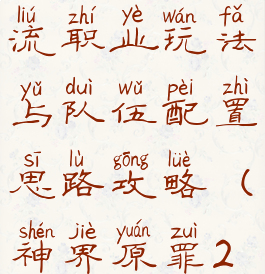 liú zhí yè wán fǎ
流职业玩法
yǔ duì wǔ pèi zhì
与队伍配置
sī lù gōng lüè
思路攻略（
shén jiè yuán zuì
神界原罪2